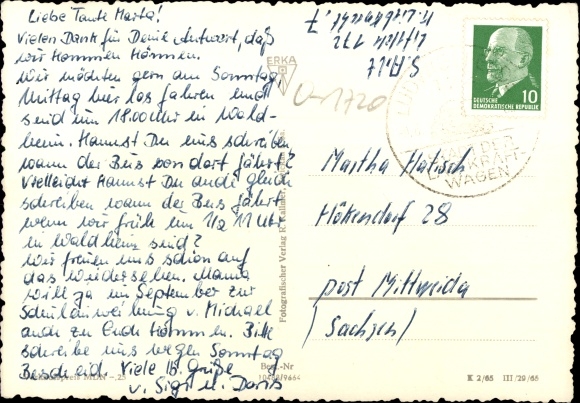 Liebe Tante Marta!
Vielen Dank für Deine Antwort, daß
wir kommen können.
Wir möchten gern am Sonntag
Mittag hier los fahren und
sind um 18.00 Uhr in Wald-
heim. Kannst Du uns schreiben
wann der Bus von dort fährt?
Vielleicht kannst Du auch gleich
schreiben wann der Bus fährt
wenn wir früh um 1/2 11 Uhr
in Waldheim sind?
Wir freuen uns schon auf
das Wiedersehen. Mama
will ja im September zur
Schuleinweihung v. Michael
auch zu Euch kommen. Bitte
schreibe uns wegen Sonntag
Bescheid. Viele lb. Grüße
v. Sigi u. Doris
ERKA
V-1720
172
DEUTSCHE
DEMOKRATISCHE REPUBLIK
10
STADT DER
KRAFT-
WAGEN
Martha Hatisch
Höckendorf 28
post Mittweida
(Sachsen)
Fotografischer Verlag R. Kallmer
Best.-Nr
K 2/65 III/29/65